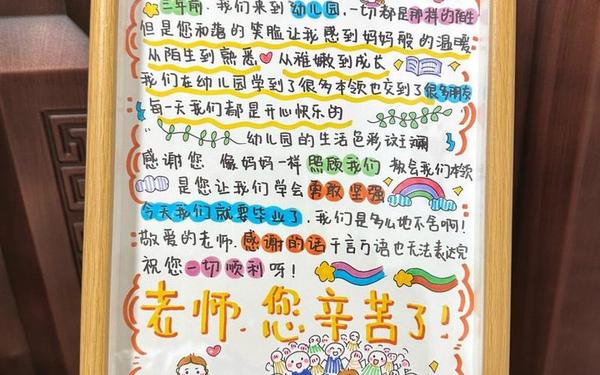 三年前,我们来到幼儿园,一切都是那样的陌生
但是您和蔼的笑脸让我感到妈妈般的温暖
从陌生到熟悉 从稚嫩到成长
我们在幼儿园学到了很多本领也交到了很多朋友
每一天我们都是开心快乐的
幼儿园的生活色彩斑斓
感谢您 像妈妈一样 照顾我们 教会我们本领
是您让我们学会勇敢 坚强
今天我们就要毕业了,我们是多么地不舍啊!
敬爱的老师,感谢的话千言万语也无法表达完
祝您一切顺利呀!
老师,您辛苦了!